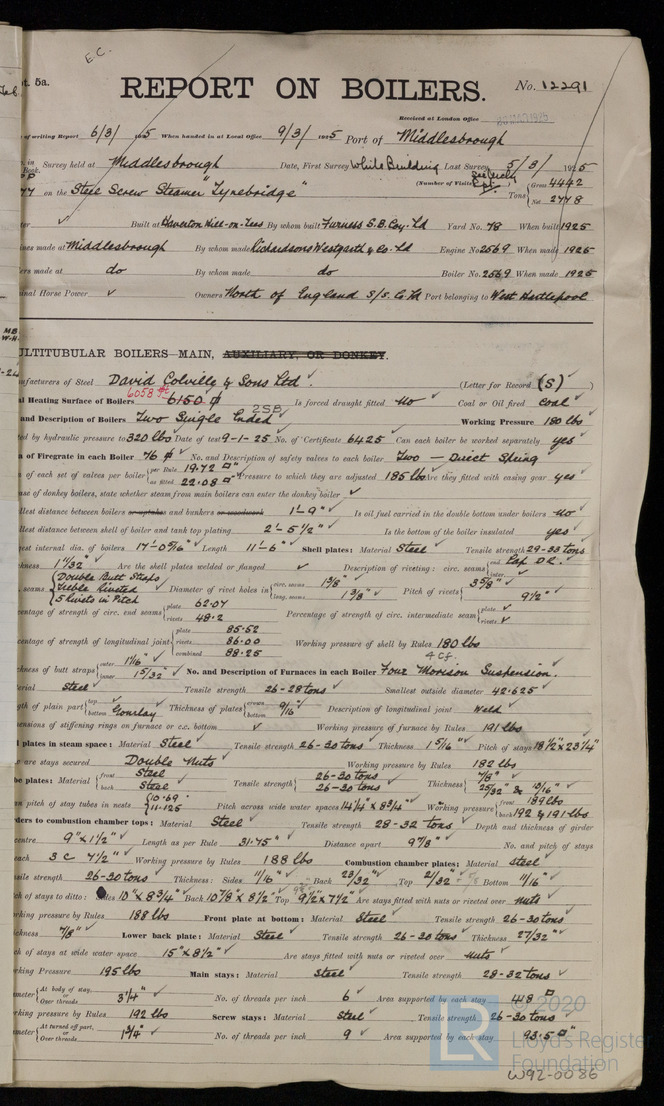 E.C.
pt. 5a.
REPORT ON BOILERS.
No. 12291
Received at London Office
of writing Report 6/3/1925 When handed in at Local Office 9/3/1925 Port of Middlesbrough
in Survey held at Middlesbrough Date, First Survey While Building Last Survey 5/3/1925
Book.
(Number of Visits
on the Steel Screw Steamer "Tynebridge" Tons { Gross 4442
Net 2778
Built at Haverton Hill-on-Tees By whom built Furness S.B. Coy. Ld Yard No. 78 When built 1925
ines made at Middlesbrough By whom made Richardsons Westgarth & Co. Ld Engine No 2569 When made 1925
ers made at do By whom made do Boiler No. 2569 When made 1925
nal Horse Power ✓ Owners North of England S/S. Co Ld Port belonging to West Hartlepool
ULTITUBULAR BOILERS—MAIN, AUXILIARY, OR DONKEY.
ufacturers of Steel David Colville & Sons Ltd. (Letter for Record (S) )
6058 ft
al Heating Surface of Boilers 6150 ф Is forced draught fitted No Coal or Oil fired Coal
2SB
and Description of Boilers Two Single Ended Working Pressure 180 lbs
ted by hydraulic pressure to 320 lbs Date of test 9-1-25 No. of Certificate 6425 Can each boiler be worked separately yes
a of Firegrate in each Boiler 76 ф No. and Description of safety valves to each boiler Two — Direct Spring
a of each set of valves per boiler { per Rule 19.72 □" as fitted 22.08 □" Pressure to which they are adjusted 185 lbs Are they fitted with easing gear yes
ase of donkey boilers, state whether steam from main boilers can enter the donkey boiler ✓
llest distance between boilers or uptakes and bunkers or woodwork 1'-9" Is oil fuel carried in the double bottom under boilers No
llest distance between shell of boiler and tank top plating 2'-5½" Is the bottom of the boiler insulated yes
gest internal dia. of boilers 17'-0 5/16" Length 11'-6" Shell plates: Material Steel Tensile strength 29-33 tons
ckness 1 11/32" Are the shell plates welded or flanged ✓ Description of riveting: circ. seams { end Lap D.R.
inter
. seams { Double Butt Straps
Treble Riveted
5 Rivets in Pitch
Diameter of rivet holes in { circ. seams 1 3/8" long. seams 1 3/8" Pitch of rivets { 3 5/8" 9½"
centage of strength of circ. end seams { plate 62.07 rivets 48.2 Percentage of strength of circ. intermediate seam { plate ✓ rivets ✓
centage of strength of longitudinal joint { plate 85.52 rivets 86.00 combined 88.25 Working pressure of shell by Rules 180 lbs
4 Cf.
ckness of butt straps { outer 1 1/16" inner 1 5/32" No. and Description of Furnaces in each Boiler Four Morison Suspension.
erial Steel Tensile strength 26-28 tons Smallest outside diameter 42.625
gth of plain part { top bottom Gourlay Thickness of plates { crown bottom 9/16" Description of longitudinal joint Weld
ensions of stiffening rings on furnace or c.c. bottom ✓ Working pressure of furnace by Rules 191 lbs
d plates in steam space: Material Steel Tensile strength 26-30 tons Thickness 1 5/16" Pitch of stays 18½" x 23¼"
are stays secured Double Nuts Working pressure by Rules 182 lbs
be plates: Material { front Steel back Steel Tensile strength { 26-30 tons 26-30 tons Thickness { 7/8" 25/32" & 13/16"
an pitch of stay tubes in nests { 10.69 11.125 Pitch across wide water spaces 14¼" x 8¾" Working pressure { front 189 lbs back 192 & 191 lbs
ders to combustion chamber tops: Material Steel Tensile strength 28-32 tons Depth and thickness of girder
centre 9" x 1½" Length as per Rule 31.75" Distance apart 9 7/8" No. and pitch of stays
each 3 @ 7½" Working pressure by Rules 188 lbs Combustion chamber plates: Material Steel
sile strength 26-30 tons Thickness: Sides 11/16" Back 23/32" Top 21/32" Bottom 11/16"
ch of stays to ditto: Sides 10" x 8¾" Back 10 7/8" x 8½" Top 9½" x 7½" Are stays fitted with nuts or riveted over nuts
rking pressure by Rules 188 lbs Front plate at bottom: Material Steel Tensile strength 26-30 tons
ckness 7/8" Lower back plate: Material Steel Tensile strength 26-30 tons Thickness 27/32"
ch of stays at wide water space 15" x 8½" Are stays fitted with nuts or riveted over nuts
rking Pressure 195 lbs Main stays: Material Steel Tensile strength 28-32 tons
meter { At body of stay, or Over threads 3¼" No. of threads per inch 6 Area supported by each stay 418 □"
rking pressure by Rules 192 lbs Screw stays: Material Steel Tensile strength 26-30 tons
meter { At turned off part, or Over threads 1¾" No. of threads per inch 9 Area supported by each stay 93.5 □"
LR © 2020
Lloyd's Register
Foundation
W92-0086